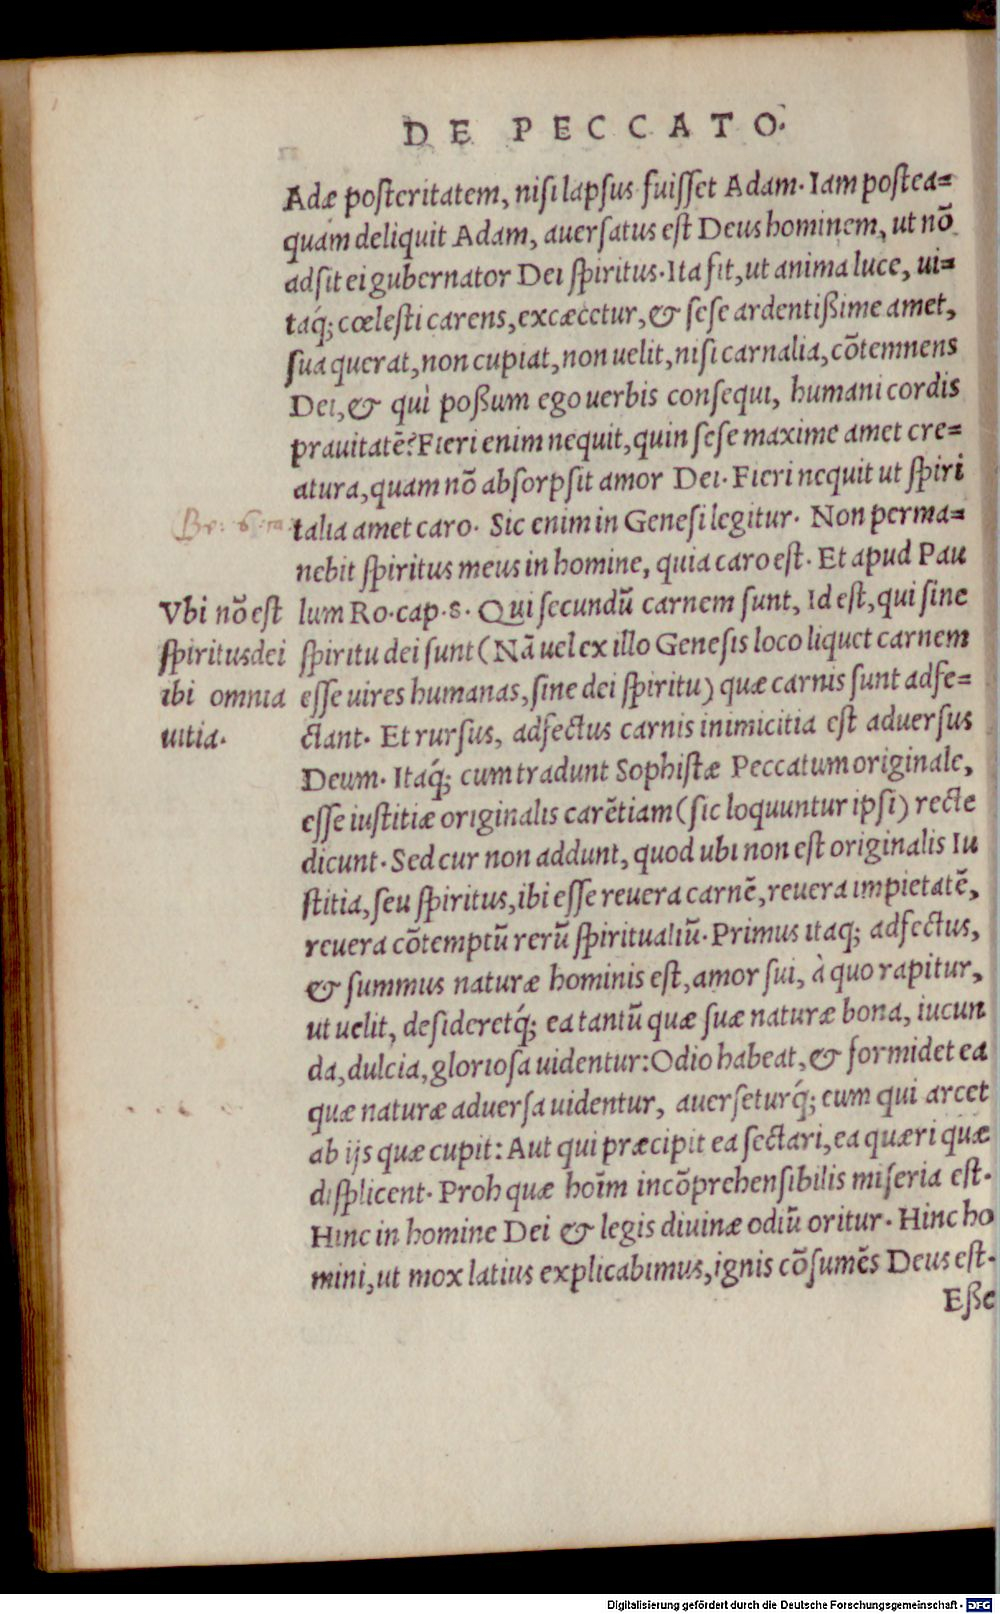 DE PECCATO.
Adæ posteritatem, nisi lapsus fuisset Adam. Iam postea=
quam deliquit Adam, auersatus est Deus hominem, ut nõ
adsit ei gubernator Dei spiritus. Ita fit, ut anima luce, ui=
taq́; cœlesti carens, excæcetur, & sese ardentißime amet,
sua querat, non cupiat, non uelit, nisi carnalia, cõtemnens
Dei, & quì poßum ego uerbis consequi, humani cordis
prauitatẽ? Fieri enim nequit, quin sese maxime amet cre=
atura, quam nõ absorpsit amor Dei. Fieri nequit ut spiri
talia amet caro. Sic enim in Genesi legitur. Non perma=
nebit spiritus meus in homine, quia caro est. Et apud Pau
lum Ro. cap. 8. Qui secundũ carnem sunt, Id est, qui sine
spiritu dei sunt (Nã uel ex illo Genesis loco liquet carnem
esse uires humanas, sine dei spiritu) quæ carnis sunt adfe=
ctant. Et rursus, adfectus carnis inimicitia est aduersus
Deum. Itaq́; cum tradunt Sophistæ Peccatum originale,
esse iustitiæ originalis carẽtiam (sic loquuntur ipsi) recte
dicunt. Sed cur non addunt, quod ubi non est originalis Iu
stitia, seu spiritus, ibi esse reuera carnẽ, reuera impietatẽ,
reuera cõtemptũ rerũ spiritualiũ. Primus itaq; adfectus,
& summus naturæ hominis est, amor sui, à quo rapitur,
ut uelit, desideretq́; ea tantũ quæ suæ naturæ bona, iucun
da, dulcia, gloriosa uidentur: Odio habeat, & formidet ea
quæ naturæ aduersa uidentur, auerseturq́; eum qui arcet
ab ijs quæ cupit: Aut qui præcipit ea sectari, ea quæri quæ
displicent. Proh quæ hoĩm incõprehensibilis miseria est.
Hinc in homine Dei & legis diuinæ odiũ oritur. Hinc ho
mini, ut mox latius explicabimus, ignis cõsumẽs Deus est.
Eße
Vbi nõ est
spiritus dei
ibi omnia
uitia.
Digitalisierung gefördert durch die Deutsche Forschungsgemeinschaft - DFG